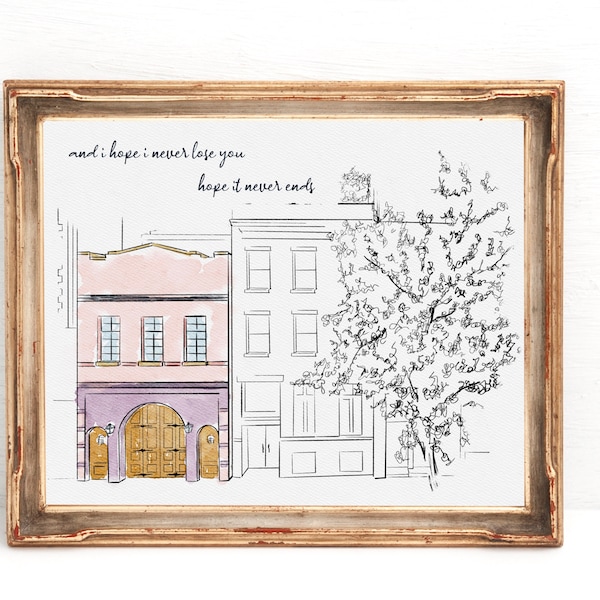 and i hope i never lose you
hope it never ends